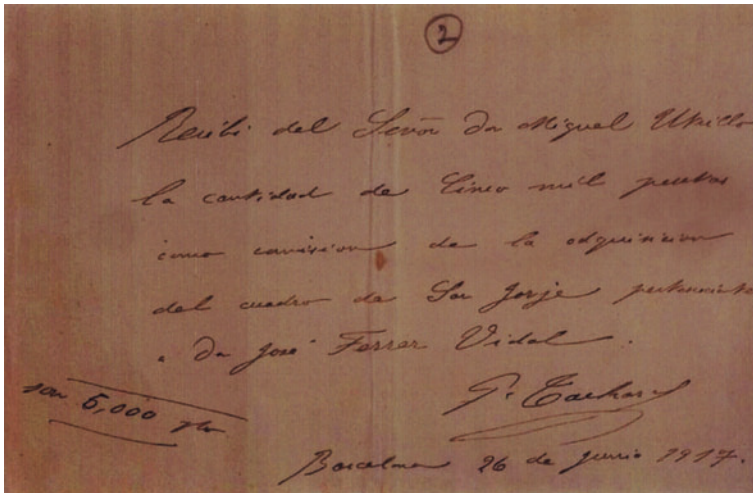 2
Recibi del Señor Dn Miguel Utrillo
la cantidad de Cinco mil pesetas
como comision de la adquisicion
del cuadro de San Jorje perteneciente
a Dn José Ferrer Vidal.
son 5,000 pts
Barcelona 26 de Junio 1917.